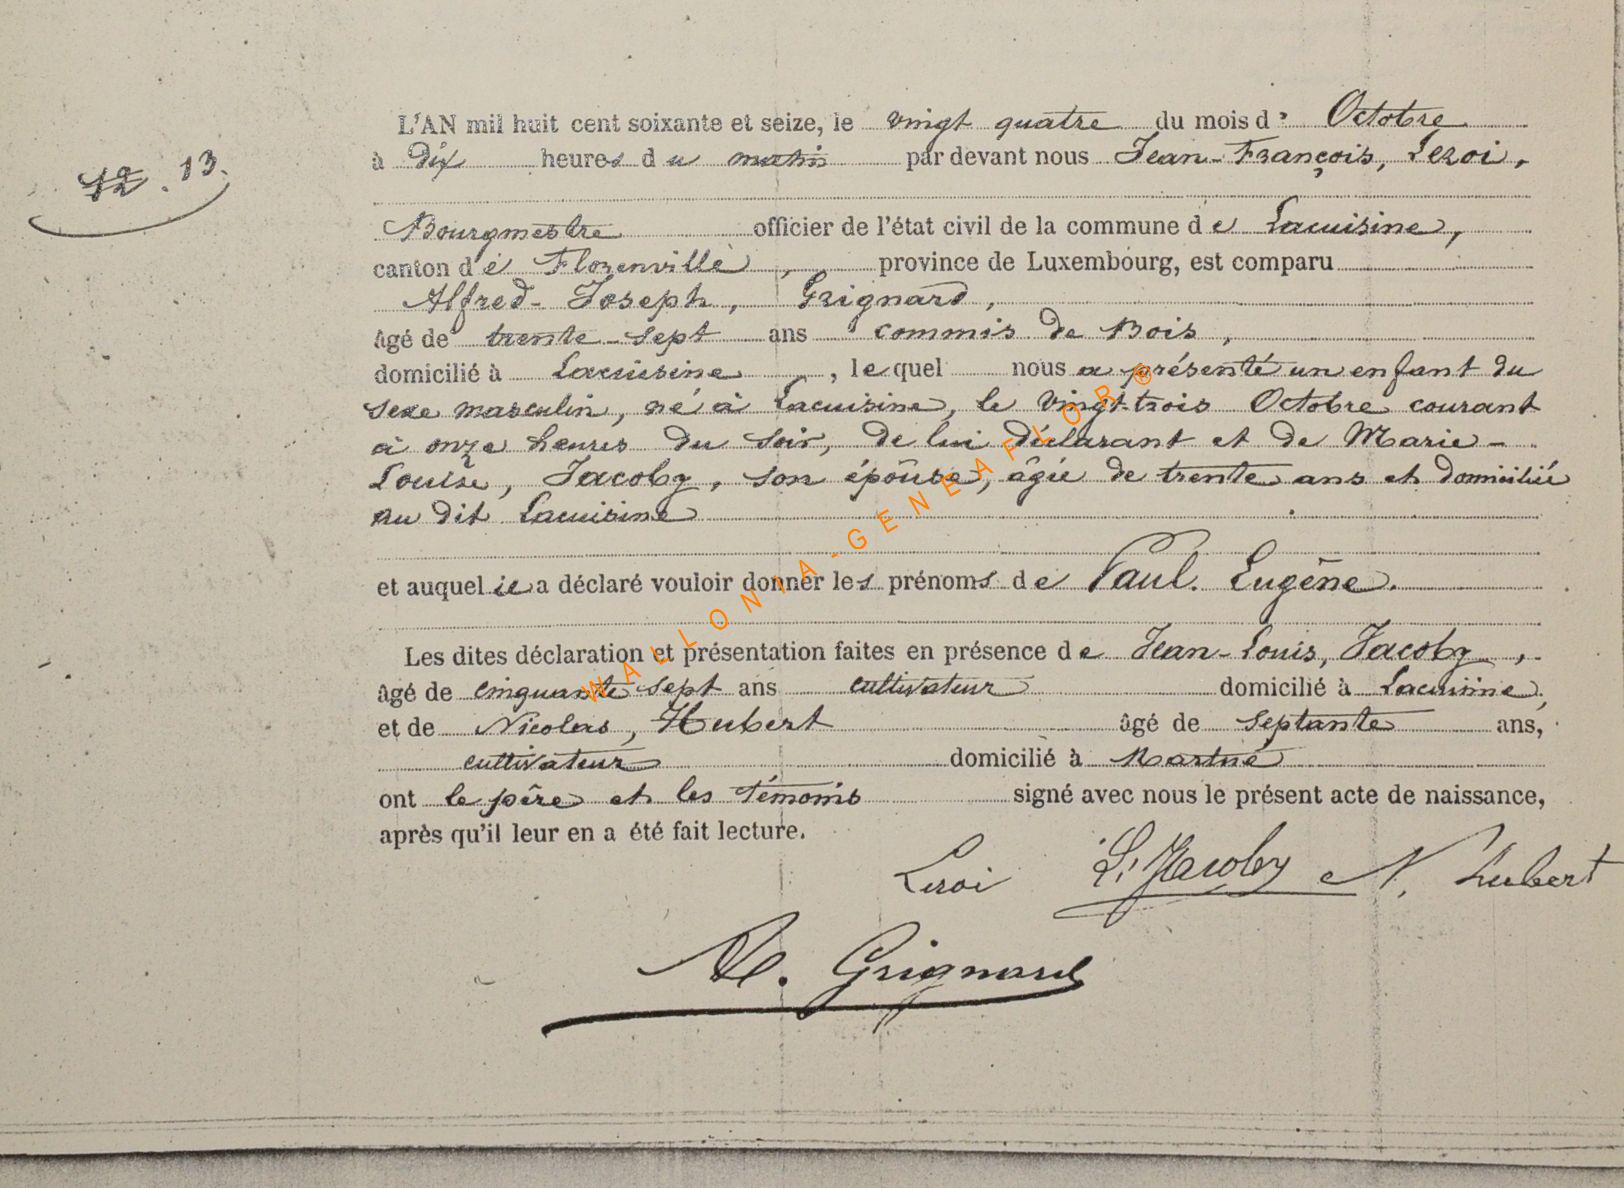 12. 13.
L'AN mil huit cent soixante et seize, le vingt quatre du mois d' Octobre
à dix heures du matin par devant nous Jean-François, Leroi,
Bourgmestre officier de l'état civil de la commune de Lacuisine,
canton de Florenville, province de Luxembourg, est comparu
Alfred-Joseph, Grignard,
âgé de trente-sept ans commis de Bois,
domicilié à Lacuisine, lequel nous a présenté un enfant du
sexe masculin, né à Lacuisine, le vingt-trois Octobre courant
à onze heures du soir, de lui déclarant et de Marie-
Louise, Jacoby, son épouse, âgée de trente ans et domiciliée
au dit Lacuisine
et auquel il a déclaré vouloir donner les prénoms de Paul. Eugène.
Les dites déclaration et présentation faites en présence de Jean-Louis, Jacoby,
âgé de cinquante sept ans cultivateur domicilié à Lacuisine,
et de Nicolas, Hubert âgé de septante ans,
cultivateur domicilié à Martué
ont le père et les témoins signé avec nous le présent acte de naissance,
après qu'il leur en a été fait lecture.
Leroi L. Jacoby N. Hubert
Al. Grignard
WALLONIA-GENEAFLOR ®